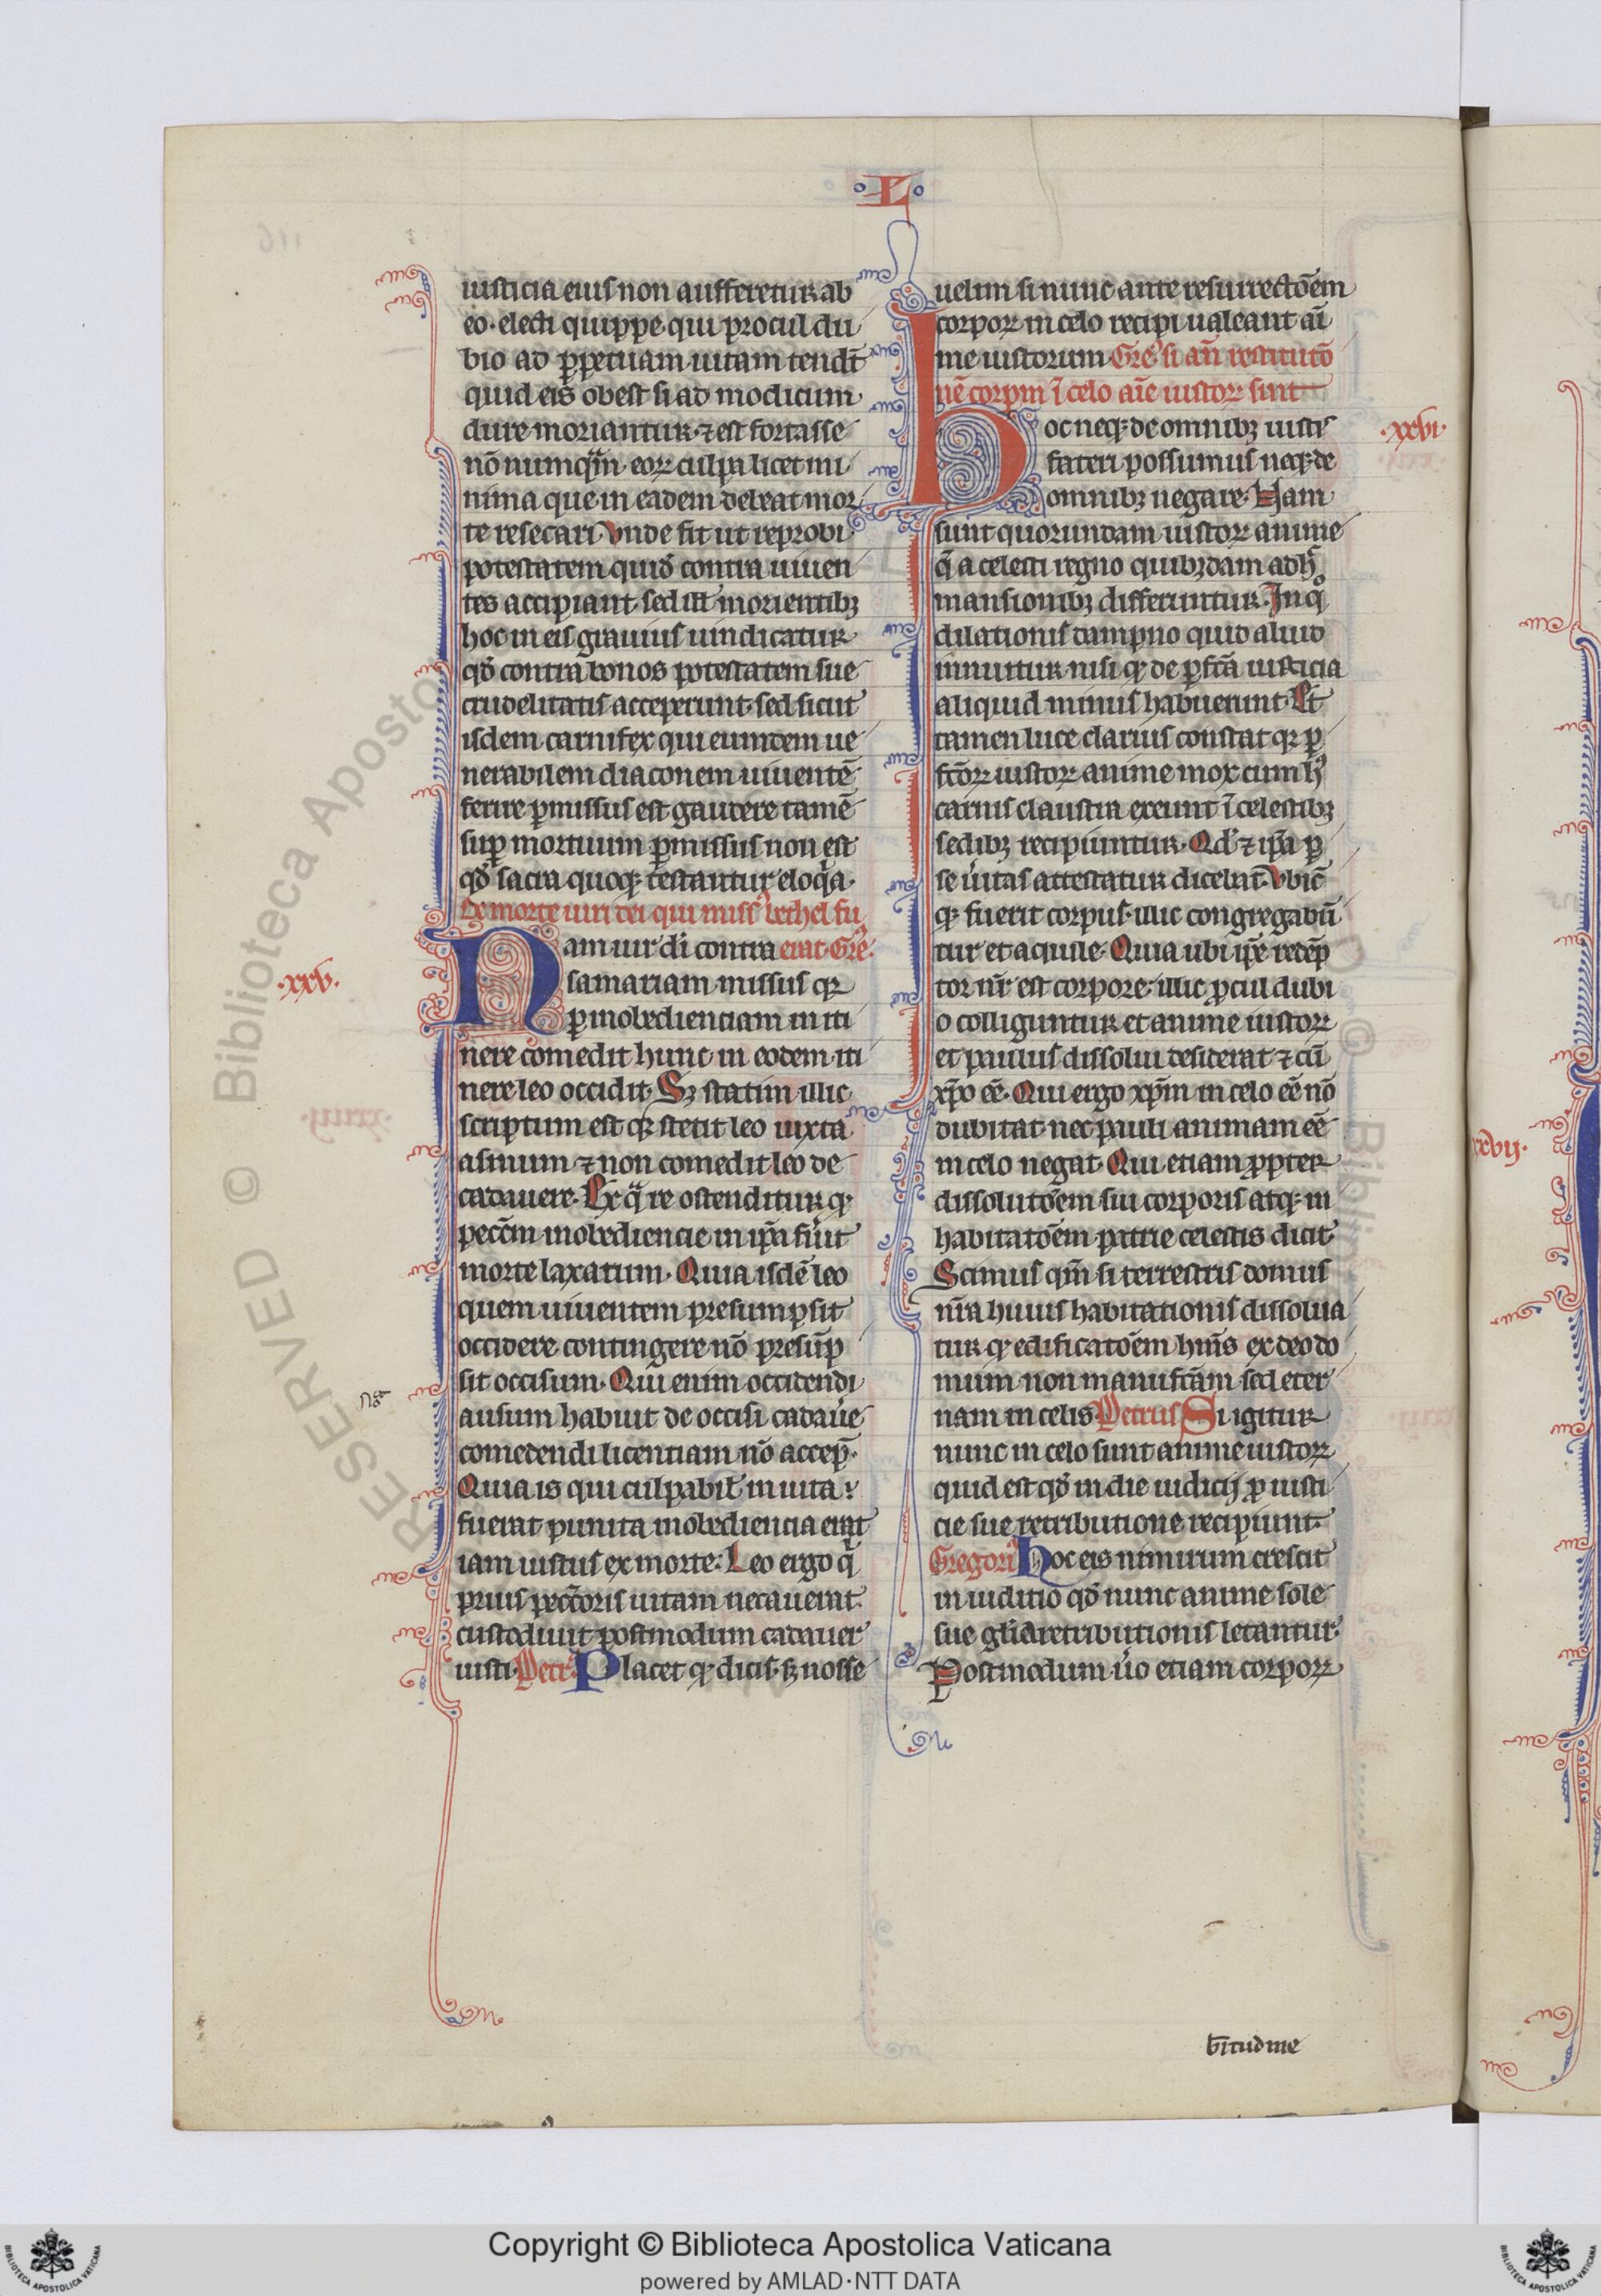 L
iusticia eius non aufferetur ab
eo. electi quippe qui procul du
bio ad ꝑpetuam uitam tendt̄
quid eis obest si ad modicum
dure moriantur. ⁊ est fortasse
nō numqͣm eoꝝ culpa licet mi
nima que in eadem debeat mor
te resecari. Vnde fit ut reprobi
potestatem quid̓ contra uiuen
tes accipiant. sed ill̓ morientibꝫ
hoc in eis grauius uindicatur
qd̓ contra bonos potestatem sue
crudelitatis acceperunt. sed sicut
isdem carnifex qui eumdem ue
nerabilem diaconem uiuentē
ferire ꝑmissus est gaudere tamē
suꝑ mortuum ꝑmissus non est
qd̓ sacra quoqꝫ testantur eloqͣa.
De morte uiri dei qui miss᷒ bethel fu
.xxv.
Nam uir di̓ contra erat. Gre᷒.
samariam missus qꝫ
ꝑ inobedienciam in iti
nere comedit hunc in eodem iti
nere leo occidit. Sꝫ statim illic
scriptum est qꝫ stetit leo iuxta
asinum ⁊ non comedit leo de
cadauere. Ex qͣ re ostenditur qꝫ
pecc̄m inobediencie in ip̄a fu̓it
morte laxatum. Quia isdē leo
quem uiuentem presumpsit
occidere contingere nō presūp
sit occisum. Qui enim occidendi
ausum habuit de occisi cadaue̓
comedendi licentiam nō accep̄.
Quia is qui culpabil̓ in uita
fuerat punita inobediencia erat
iam iustus ex morte. Leo ergo qͥ
prius pecc̄oris uitam necauerat.
custodiuit postmodum cadauer
iusti. Petr᷒. Placet qꝫ dicis. sꝫ nosse
uelim si nunc ante resurrectōem
corpoꝝ in celo recipi ualeant ai̅
me iustorum. Gre᷒. si an̄ restitutō
nē corpm ī celo aīe iustoꝝ sint
.xxvi.
Hoc neqꝫ de omnibꝫ iustis
fateri possumus neqꝫ de
omnibꝫ negare. Nam
sunt quorundam iustoꝝ anime
q̄ a celesti regno quibꝫdam adhͨ
mansionibꝫ differuntur. In qͦ
dilationis dampno quid aliud
innuitur nisi qꝫ de ꝑfc̄a iusticia
aliquid minus habuerunt. Et
tamen luce clarius constat qꝫ ꝑ
fc̄oꝝ iustoꝝ anime mox cum h᷒
carnis claustra exeunt ī celestibꝫ
sedibꝫ recipiuntur. Qd̓ ⁊ ip̄a ꝑ
se u̓itas attestatur dicebat. Vbic̄
qꝫ fuerit corpus. illic congregabū
tur et aquile. Quia ubi ip̄e redēp
tor nr̄ est corpore. illic ꝓcul dubi
o colliguntur et anime iustoꝝ
et paulus dissolui desiderat ⁊ cū
xp̄o eē. Qui ergo xp̄m in celo eē nō
dubitat. nec pauli animam eē
in celo negat. Qui etiam ꝓpter
dissolutōem sui corporis atqꝫ in
habitatōem patrie celestis dicit
Scimus qm̄ si terrestris domus
nr̄a huius habitationis dissolua
tur qꝫ edificatōem hm̄s ex deo do
mum non manufc̄am sed eter
nam in celis. Petrus Si igitur
nunc in celo sunt anime iustoꝝ
quid est qd̓ in die iudicij ꝓ iusti
cie sue retributione recipiunt.
Gregori᷒ Hoc eis nimirum crescit
in iuditio qd̓ nunc anime sole
sue gl̄ia retributionis letantur.
Postmodum u̓o etiam corpoꝝ
b̄itudine
xxvij.
Copyright © Biblioteca Apostolica Vaticana
powered by AMLAD·NTT DATA